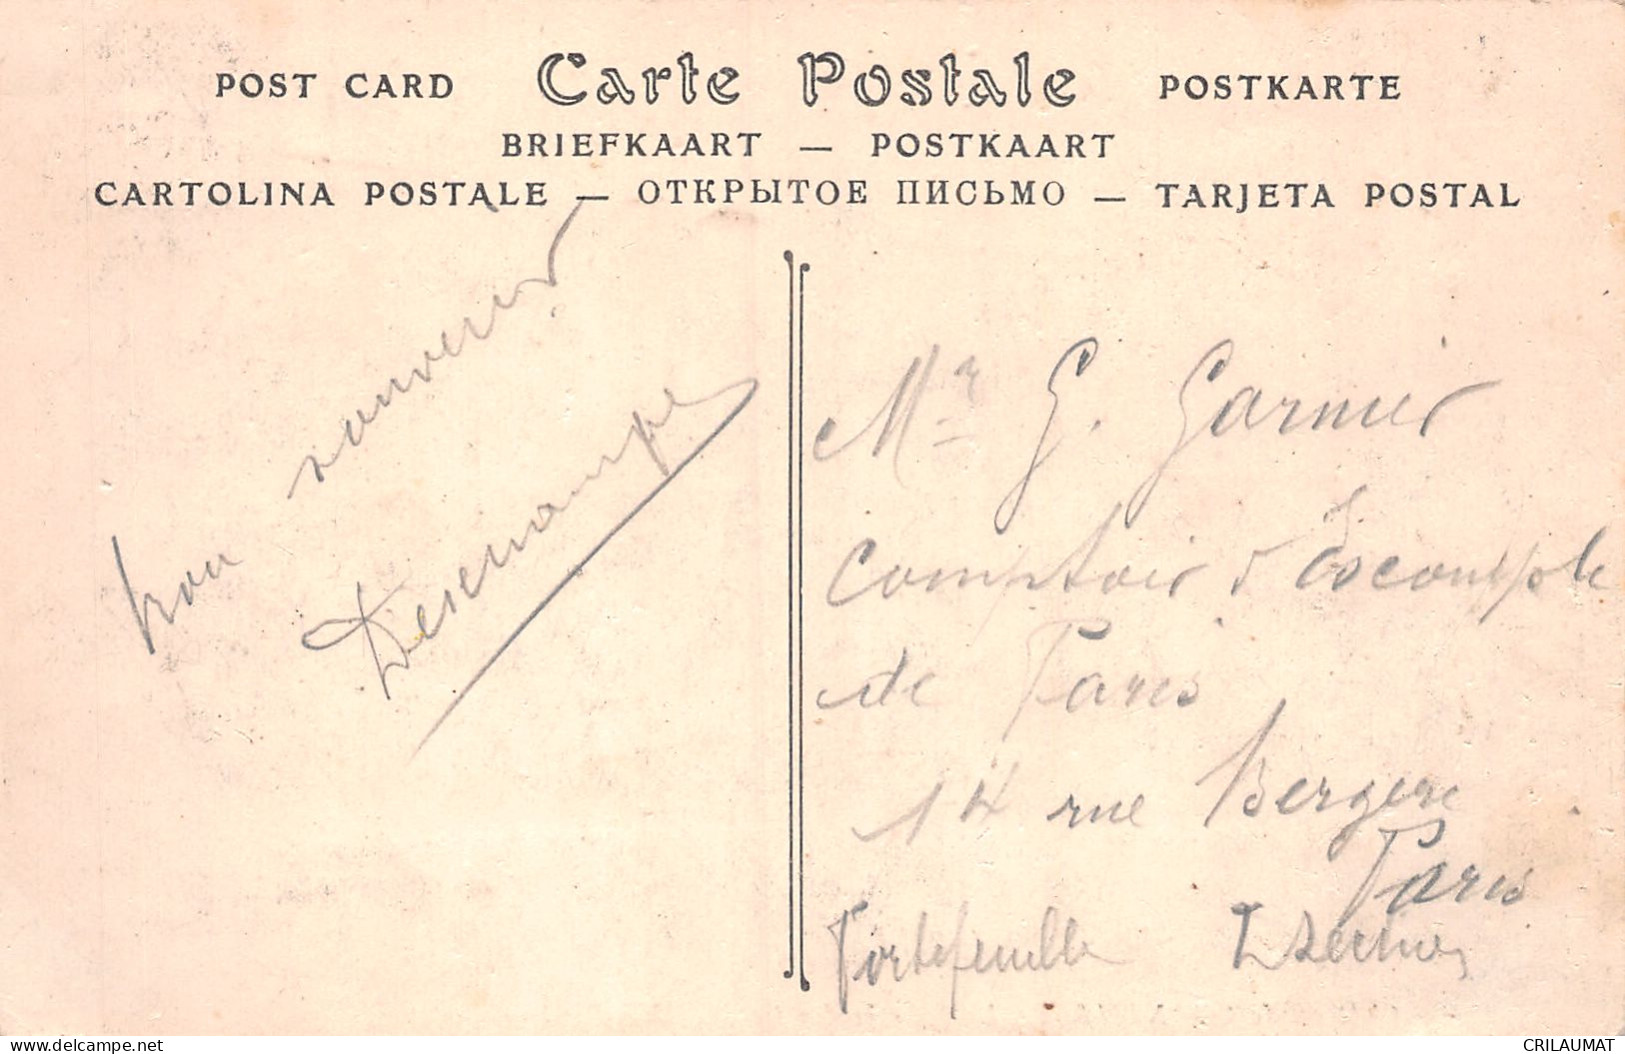 POST CARD Carte Postale POSTKARTE
BRIEFKAART — POSTKAART
CARTOLINA POSTALE — ОТКРЫТОЕ ПИСЬМО — TARJETA POSTAL
bon souvenir
Deschamps
Mr G. Garnier
Comptoir d'Escompte
de Paris
14 rue Bergère
Paris
Portefeuille
delcampe.net
CRILAUMAT